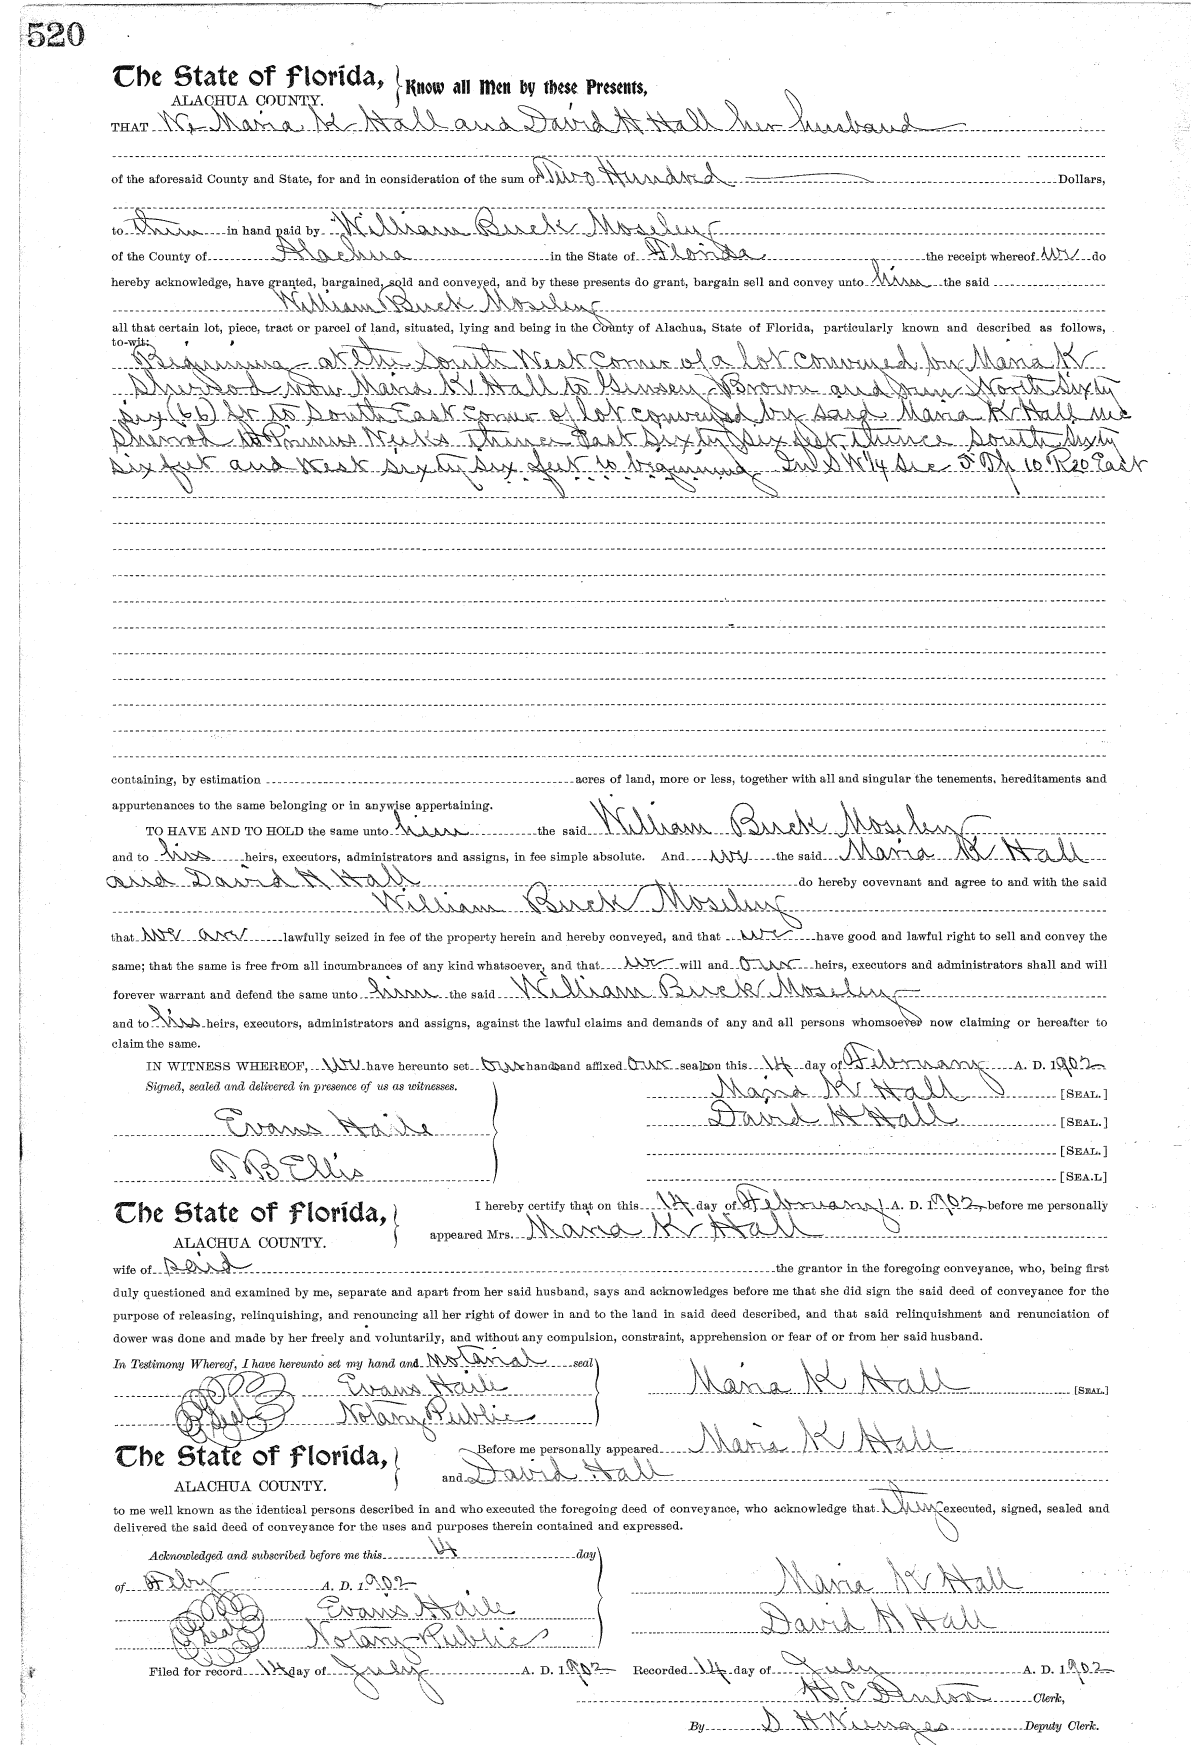 520
The State of Florida,
ALACHUA COUNTY.
Know all Men by these Presents,
THAT We Maria K Hall and David H Hall her husband
of the aforesaid County and State, for and in consideration of the sum of Two Hundred Dollars,
to them in hand paid by William Buck Moseley
of the County of Alachua in the State of Florida the receipt whereof we do
hereby acknowledge, have granted, bargained, sold and conveyed, and by these presents do grant, bargain sell and convey unto him the said
William Buck Moseley
all that certain lot, piece, tract or parcel of land, situated, lying and being in the County of Alachua, State of Florida, particularly known and described as follows,
to-wit:
Beginning at the South West Corner of a lot conveyed by Maria K
Sherrod now Maria K Hall to Brown and run North Sixty
six (66) ft to South East Corner of lot conveyed by said Maria K Hall nee
Sherrod to Primus Weeks thence East Sixty Six feet thence South Sixty
six feet and West sixty six feet to beginning In S W 1/4 Sec 5 Tp 10 R 20 East
containing, by estimation acres of land, more or less, together with all and singular the tenements, hereditaments and
appurtenances to the same belonging or in anywise appertaining.
TO HAVE AND TO HOLD the same unto him the said William Buck Moseley
and to his heirs, executors, administrators and assigns, in fee simple absolute. And we the said Maria K Hall
and David H Hall do hereby covevnant and agree to and with the said
William Buck Moseley
that we are lawfully seized in fee of the property herein and hereby conveyed, and that we have good and lawful right to sell and convey the
same; that the same is free from all incumbrances of any kind whatsoever, and that we will and our heirs, executors and administrators shall and will
forever warrant and defend the same unto him the said William Buck Moseley
and to his heirs, executors, administrators and assigns, against the lawful claims and demands of any and all persons whomsoever now claiming or hereafter to
claim the same.
IN WITNESS WHEREOF, we have hereunto set our hands and affixed our seals on this 14 day of February A. D. 1902
Signed, sealed and delivered in presence of us as witnesses.
Maria K Hall [SEAL.]
David H Hall [SEAL.]
Evans Haile
[SEAL.]
T B Ellis
[SEA.L]
The State of Florida,
ALACHUA COUNTY.
I hereby certify that on this 14 day of February A. D. 1902 before me personally
appeared Mrs. Maria K Hall
wife of said the grantor in the foregoing conveyance, who, being first
duly questioned and examined by me, separate and apart from her said husband, says and acknowledges before me that she did sign the said deed of conveyance for the
purpose of releasing, relinquishing, and renouncing all her right of dower in and to the land in said deed described, and that said relinquishment and renunciation of
dower was done and made by her freely and voluntarily, and without any compulsion, constraint, apprehension or fear of or from her said husband.
In Testimony Whereof, I have hereunto set my hand and notarial seal
Evans Haile
Maria K Hall [SEAL]
Seal Notary Public
The State of Florida,
ALACHUA COUNTY.
Before me personally appeared Maria K Hall
and David Hall
to me well known as the identical persons described in and who executed the foregoing deed of conveyance, who acknowledge that they executed, signed, sealed and
delivered the said deed of conveyance for the uses and purposes therein contained and expressed.
Acknowledged and subscribed before me this 14 day
of Feby A. D. 1902
Maria K Hall
Evans Haile
David H Hall
Seal Notary Public
Filed for record 14 day of July A. D. 1902 Recorded 14 day of July A. D. 1902
H C Denton Clerk,
By S H Wienges Deputy Clerk.